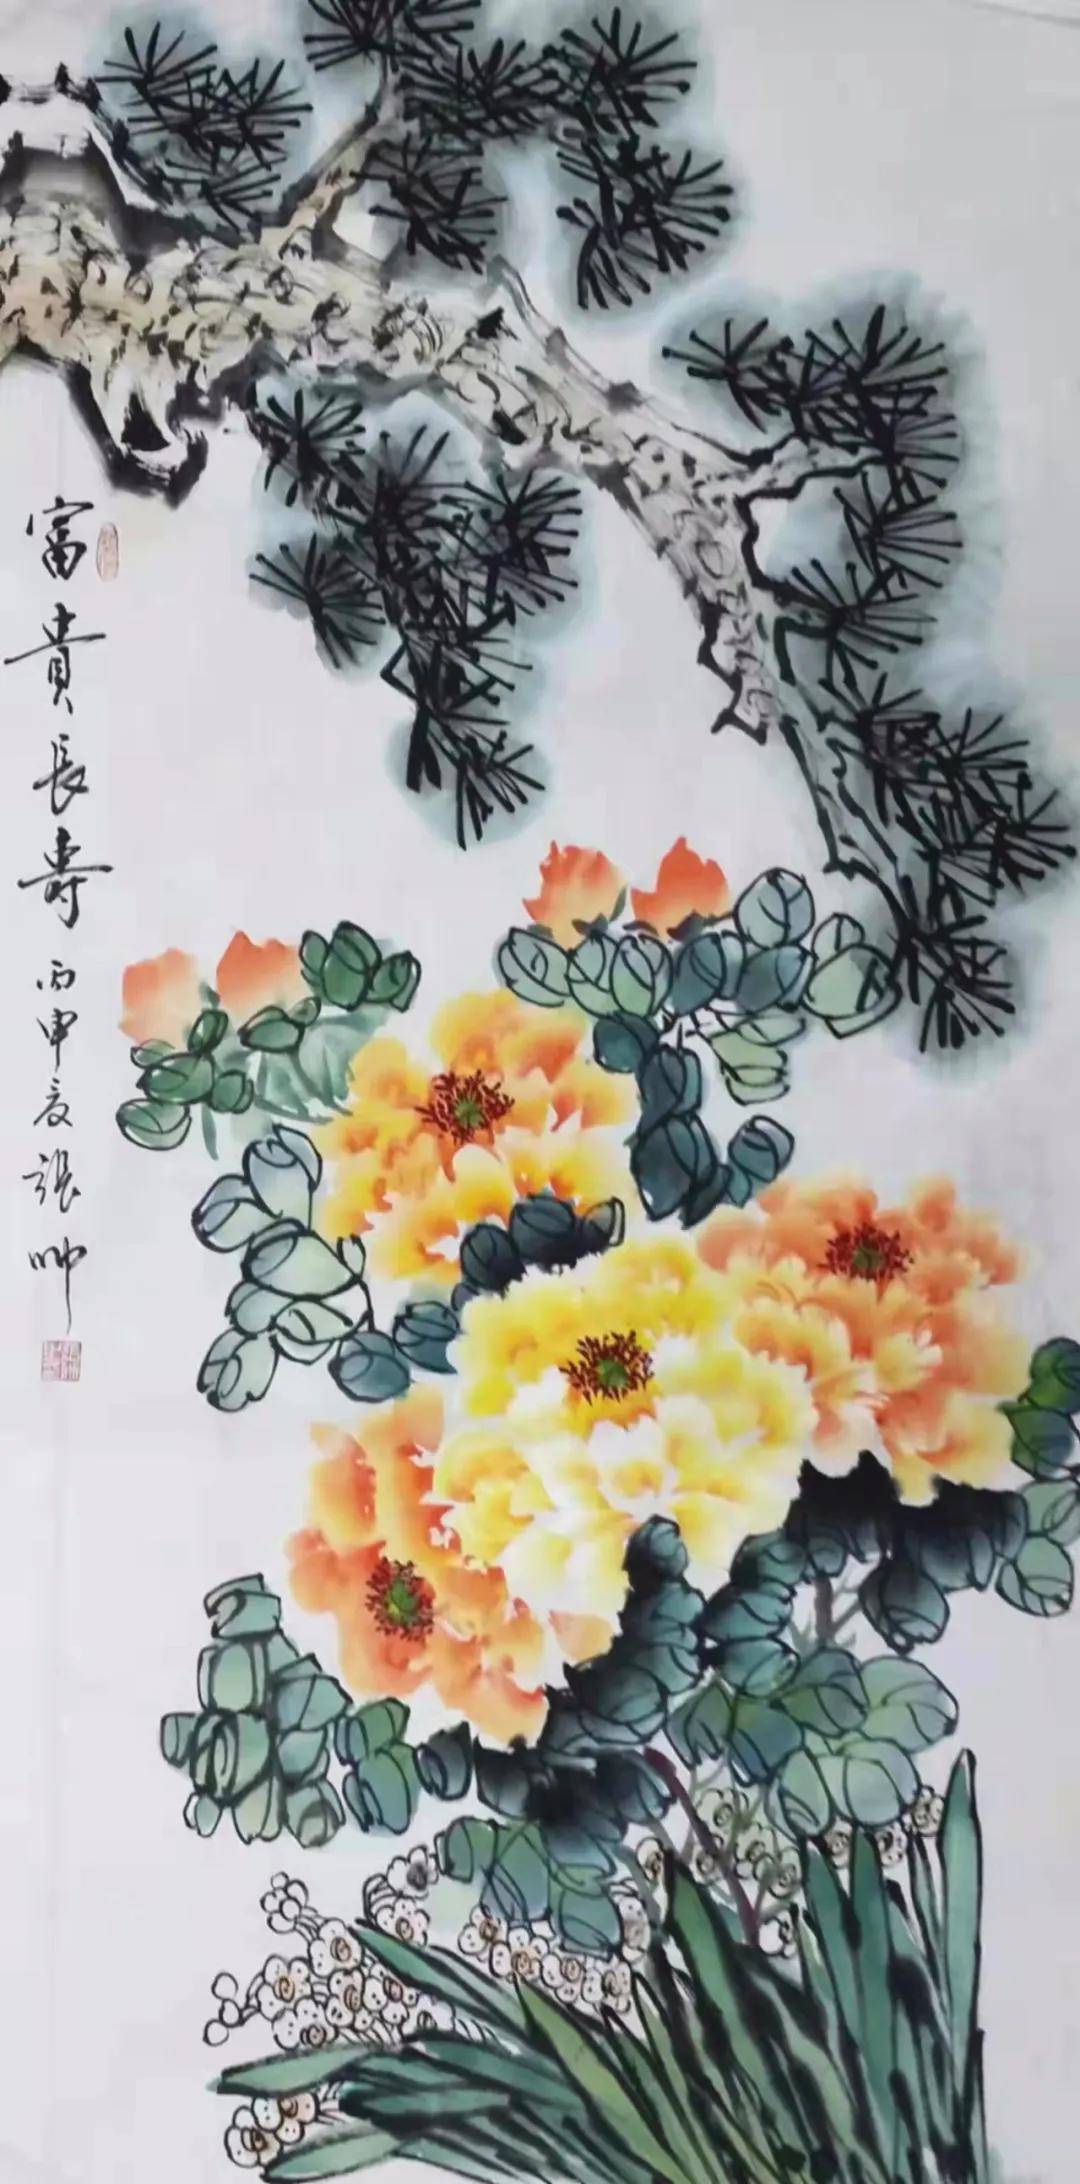 富貴長壽丙申夏張帅